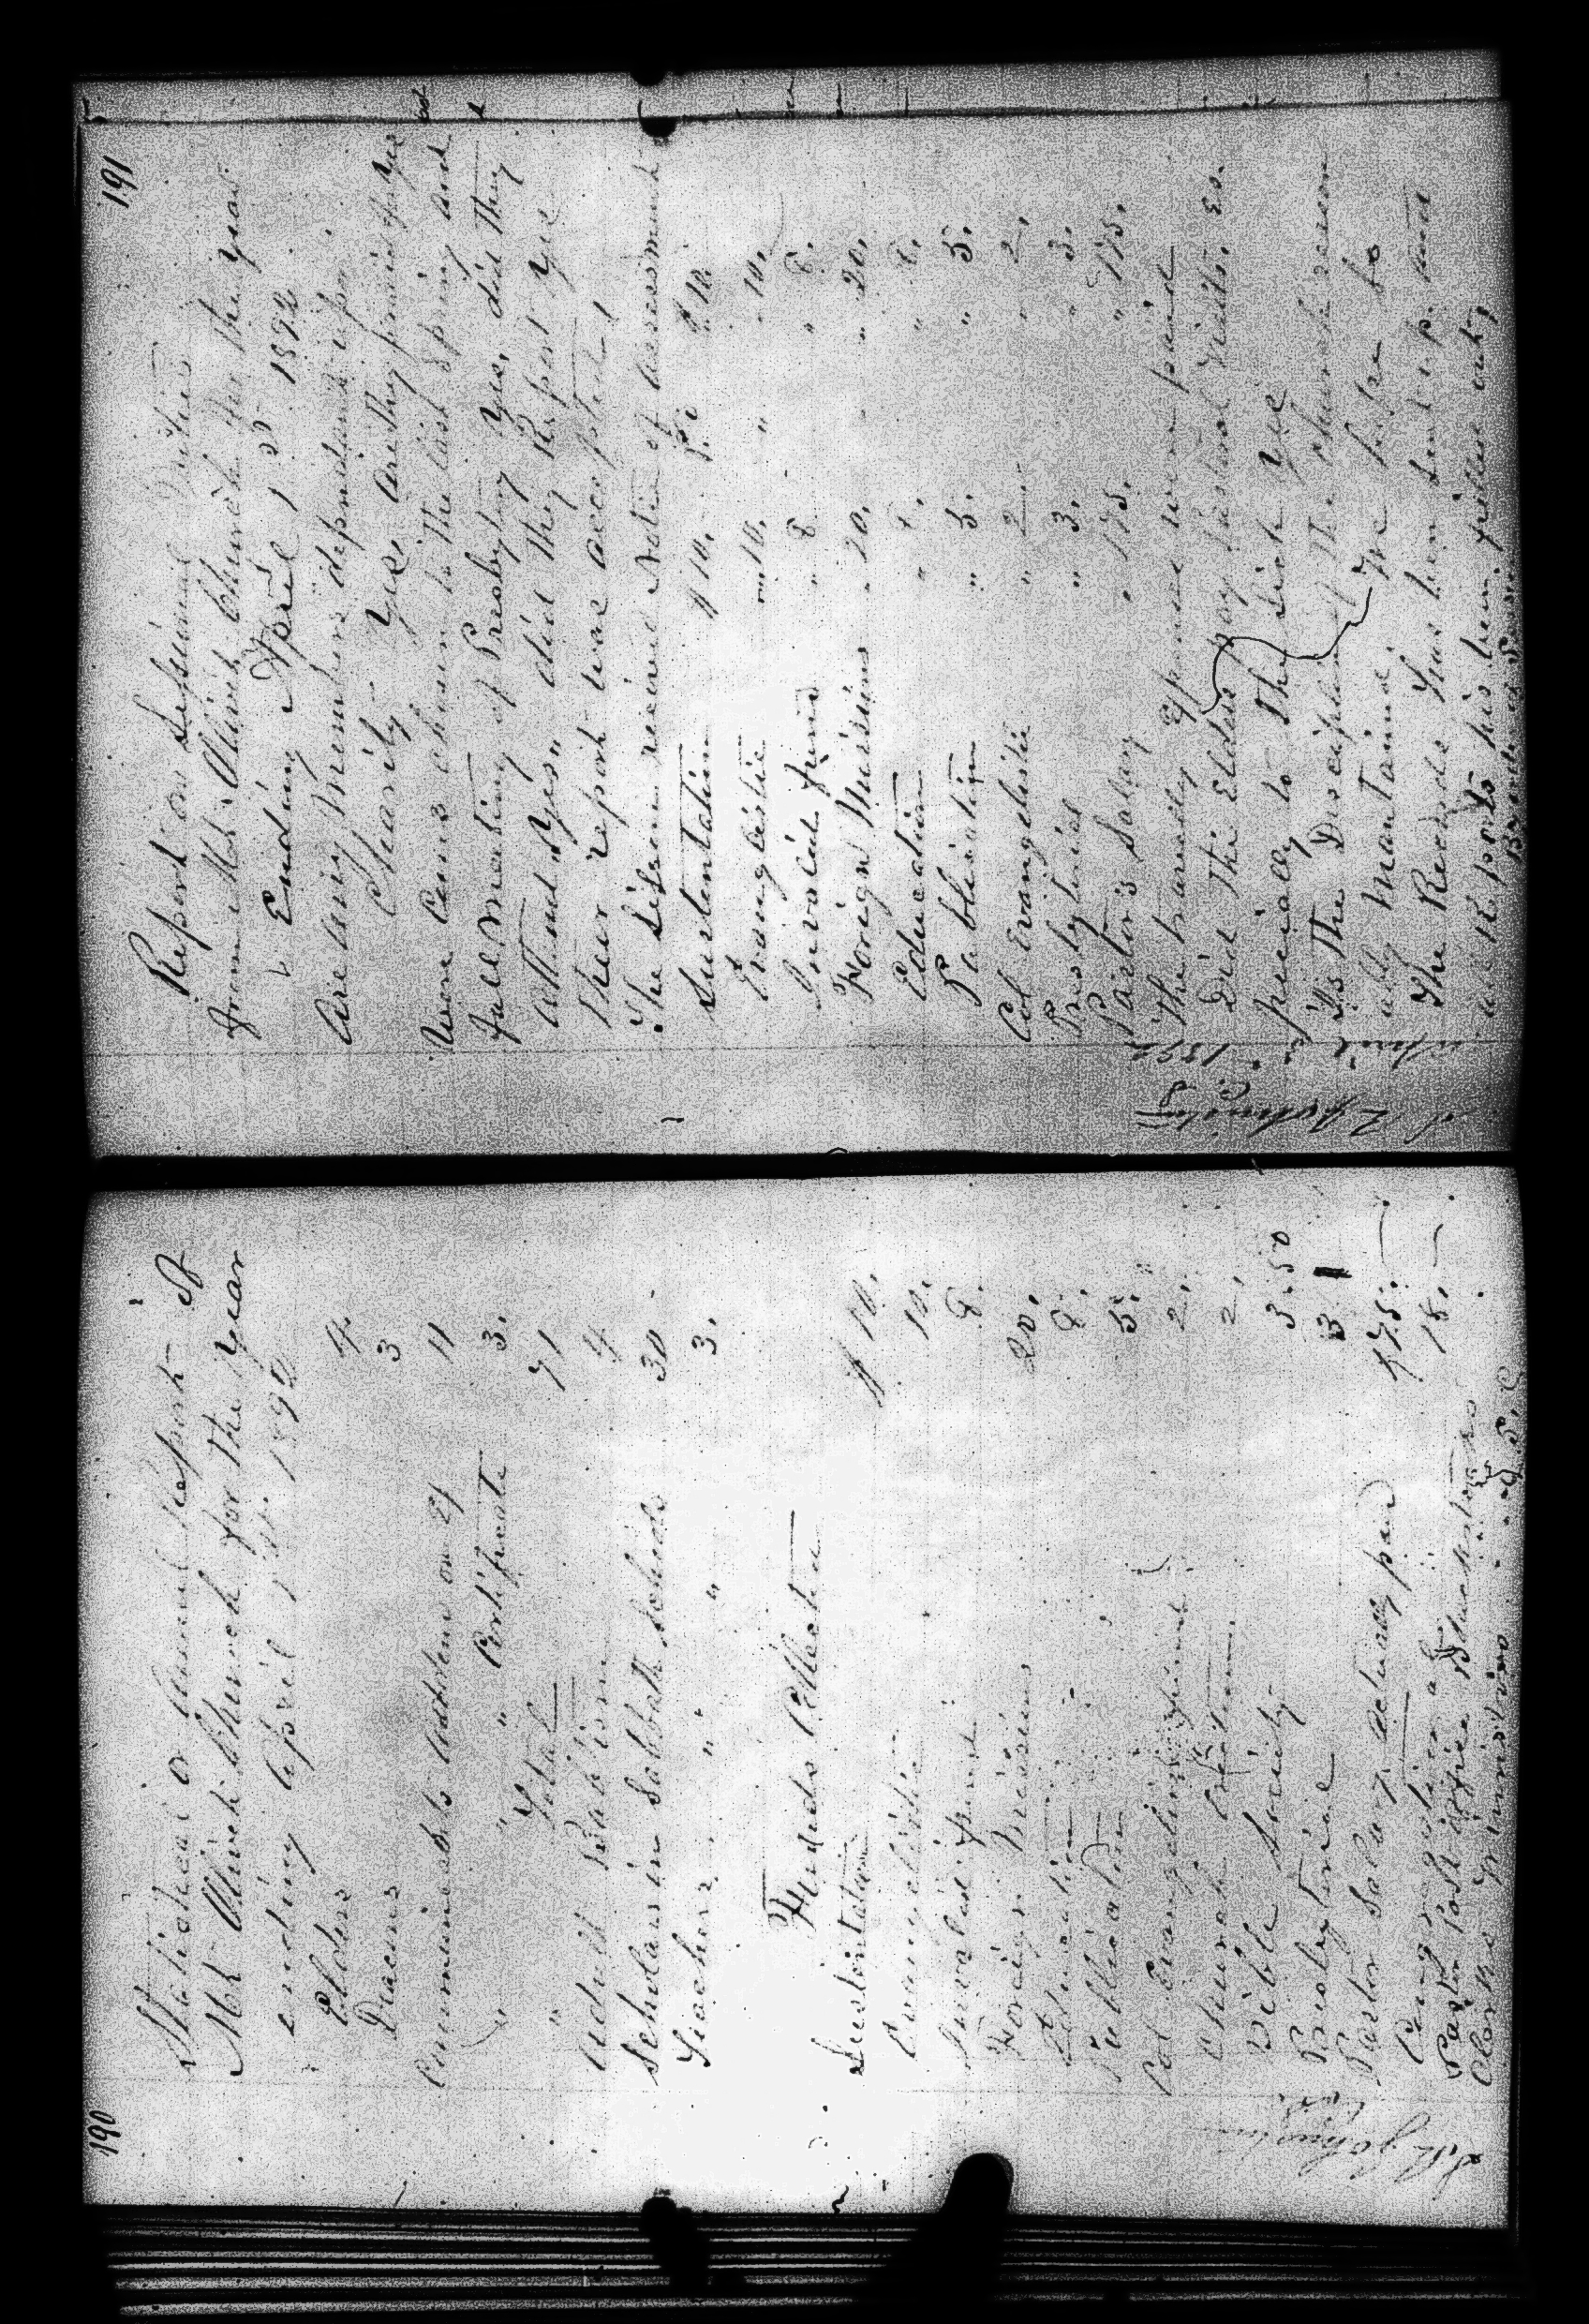 190
Statistical or Annual Report of
Mt Olivet Church for the year
ending April 1st 1892
Elders 4
Deacons 3
Communicants added on Ex 11
" " " Certificate 3.
" Total 71
Adult Baptism 4
Scholars in Sabbath Schools 30
Teachers " " " 3.
Funds Collected
Sustentation $10.
Evangelistic 10.
Invalid fund 8.
Foreign Missions 20.
Education 8.
Publication 5.
Col Evangelistic fund 2.
Church Erection 2.
Bible Society 3.50
Presbyterial 3
Pastor Salary, actually paid 175.
Congregation al 18.
Pastor Post office Blackstocks
Clerks Winnsboro S. C
191
Report on Sessional Duties
from Mt. Olivet Church for the year
Ending April 1st 1892.
Are any members dependant upon
Charity Yes. Are they provided for Yes
Were Cans chosen to the last Spring and
Fall Meeting of Presbytery Yes, did they
attend, Yes, did they Report Yes
Their report was accepted,
The Session received Notice of Assessment
Sustentation $10. Pd $10.
Evangelistic " 10. " " 10.
Invalid fund " 8 " 8.
Foreign Missions " 20. " 20.
Education " 8. " 8.
Publication " 5. " 5.
Col Evangelistic " 2. " 2.
Presbyterial " 3. " 3.
Pastor's Salary " 175. " 175.
The travelling Expenses were paid
Did the Elders pay pastoral visits, es.
pecially to the Sick Yes
Is the Discipline of the church reason
ably Mantained We hope so
The Records has been sent up and
all Reports has been full